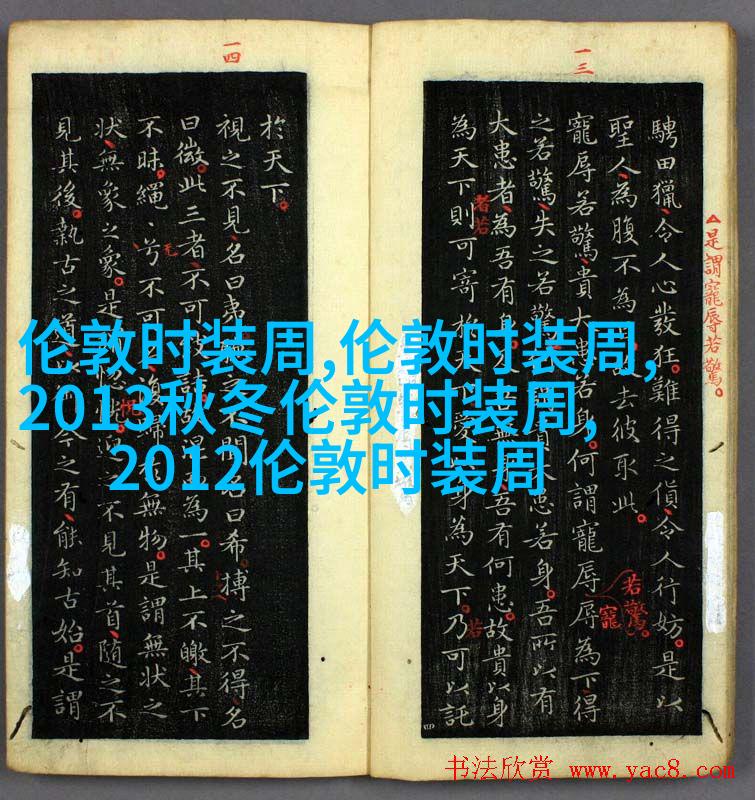 一三
騁田獵令人心發狂。難得之貨令人行妨。是以
聖人為腹不為去彼取此。
寵辱若驚貴大患若身何謂寵辱辱為下得
之若驚失之若驚患若身。吾所以有
大患者為吾有身吾有何患。故貴以身
為天下則可寄於愛以身為天下。乃可以託
△是謂寵辱若驚。
者若
若驚。
寵
若
一四
於天下。
視之不見名曰夷聞名曰希搏之不得名
曰微。此三者不可為一。其上不皦其下
不昧。繩〻兮不可名復歸無物。是謂無狀之
狀無象之象。是迎之不見其首隨之不
見其後。執古之道今之有。能知古始。是謂
无
伦敦时装周,伦敦时装周,
2013秋冬伦敦时装周,
2012伦敦时装周
书法欣赏 www.yac8.com